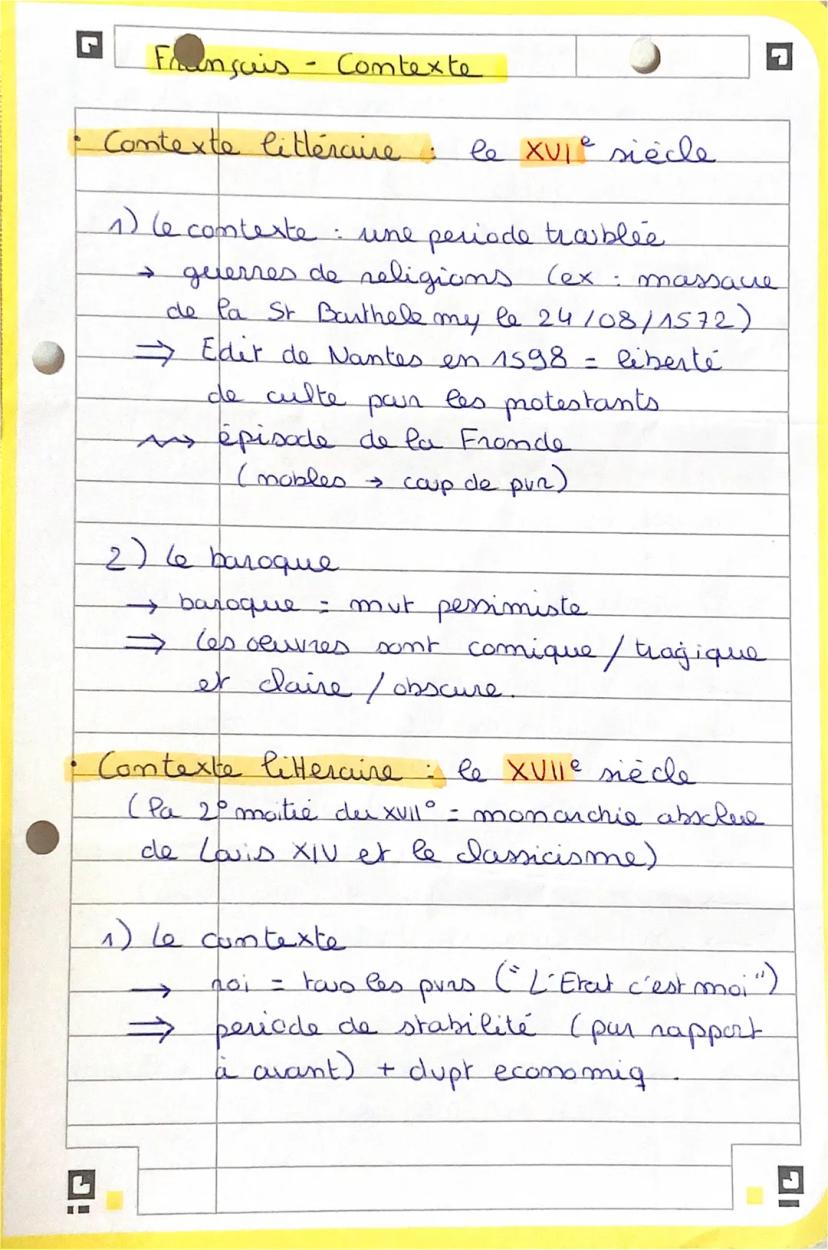 Français - Contexte
• Contexte littéraire : le XVIe siècle
1) Le contexte : une periode troublée
→ guerres de religions (ex : massacre
de la St Barthelemy le 24/08/1572)
⇒ Edit de Nantes en 1598 = liberté
de culte pour les protestants
⇝ épisode de la Fronde
(nobles → coup de pvr)
2) Le baroque
→ baroque = mvt pessimiste
⇒ Les oeuvres sont comique / tragique
et claire / obscure.
• Contexte litteraire : le XVIIe siècle
(la 2° moitié du XVII° = monarchie absolue
de Louis XIV et le classicisme)
1) Le contexte
→ roi = tous les pvrs ("L'Etat c'est moi")
⇒ periode de stabilité (par rapport
à avant) + dvpt economiq.